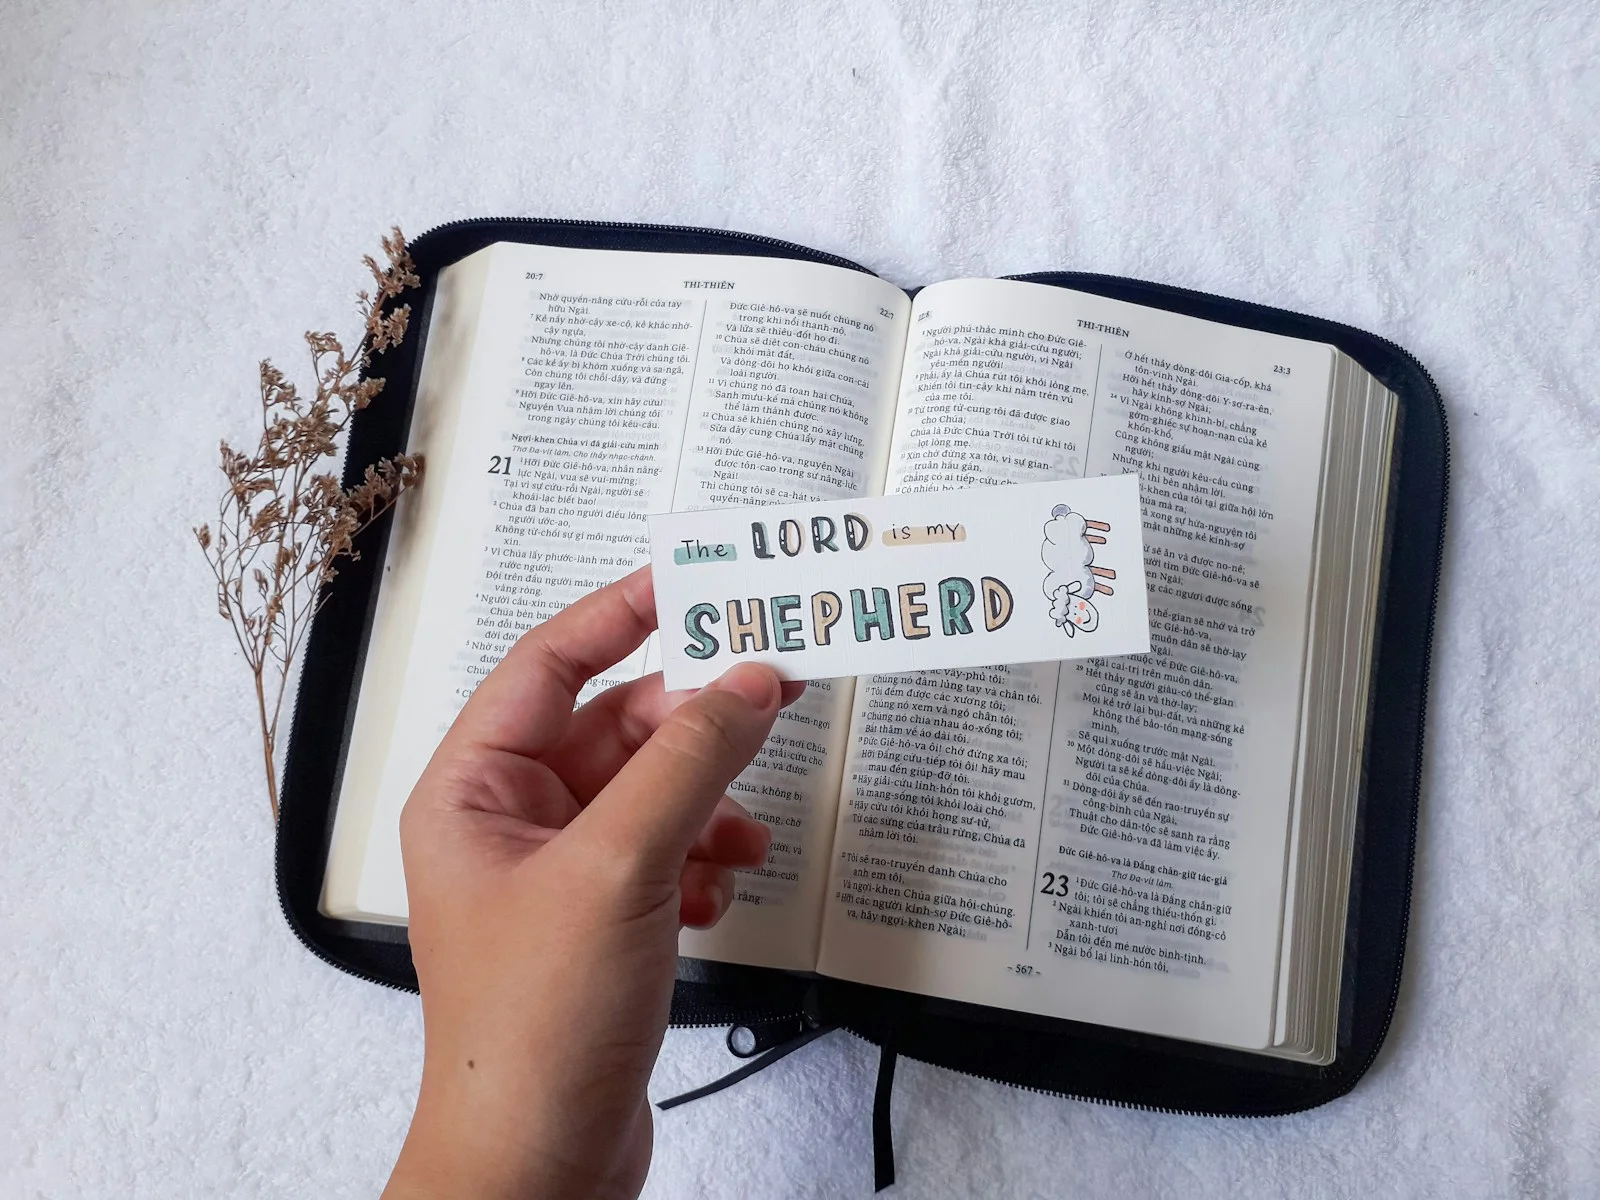 20:7
THI-THIÊN
22:7
Nhờ quyền-năng cứu-rỗi của tay
hữu Ngài.
7 Kẻ nầy nhờ-cậy xe-cộ, kẻ khác nhờ-
cậy ngựa,
Nhưng chúng tôi nhờ-cậy danh Giê-
hô-va, là Đức Chúa Trời chúng tôi.
8 Các kẻ ấy bị khòm xuống và sa-ngã,
Còn chúng tôi chỗi-dậy, và đứng
ngay lên.
9 Hỡi Đức Giê-hô-va, xin hãy cứu!
Nguyện Vua nhậm lời chúng tôi
trong ngày chúng tôi kêu-cầu.
Ngợi-khen Chúa vì đã giải-cứu mình
Thơ Đa-vít làm. Cho thầy nhạc-chánh.
21 1 Hỡi Đức Giê-hô-va, nhân năng-
lực Ngài, vua sẽ vui-mừng;
Tại vì sự cứu-rỗi Ngài, người sẽ
khoái-lạc biết bao!
2 Chúa đã ban cho người điều lòng
người ước-ao,
Không từ-chối sự gì môi người cầu
xin.
3 Vì Chúa lấy phước-lành mà đón
rước người;
Đội trên đầu người mão triều
vàng ròng.
4 Người cầu-xin cùng
Chúa bèn ban
Đến đỗi ban
đời đời
5 Nhờ sự
được
Chúa
6 Chúa
Đức Giê-hô-va sẽ nuốt chúng nó
trong khi nổi thạnh-nộ,
Và lửa sẽ thiêu-đốt họ đi.
10 Chúa sẽ diệt con-cháu chúng nó
khỏi mặt đất,
Và dòng-dõi họ khỏi giữa con-cái
loài người.
11 Vì chúng nó đã toan hại Chúa,
Sanh mưu-kế mà chúng nó không
thể làm thành được.
12 Chúa sẽ khiến chúng nó xây lưng,
Sửa dây cung Chúa lẫy mặt chúng
nó.
13 Hỡi Đức Giê-hô-va, nguyện Ngài
được tôn-cao trong sự năng-lực
Ngài!
Thì chúng tôi sẽ ca-hát và
quyền-năng của
khen-ngợi
cậy nơi Chúa,
giải-cứu cho
và được
Chúa, không bị
trùng, chớ
người; và
nhạo-cười
rằng:
The LORD is my
SHEPHERD
22:8
THI-THIÊN
23:3
8 Người phú-thác mình cho Đức Giê-
hô-va, Ngài khá giải-cứu người;
Ngài khá giải-cứu người, vì Ngài
yêu-mến người!
9 Phải, ấy là Chúa rút tôi khỏi lòng mẹ,
Khiến tôi tin-cậy khi nằm trên vú
của mẹ tôi.
10 Từ trong tử-cung tôi đã được giao
cho Chúa;
Chúa là Đức Chúa Trời tôi từ khi tôi
lọt lòng mẹ.
11 Xin chớ đứng xa tôi, vì sự gian-
truân hầu gần,
Chẳng có ai tiếp-cứu cho
12 Có nhiều bò đực
vây-phủ tôi:
Chúng nó đâm lủng tay và chân tôi.
17 Tôi đếm được các xương tôi;
Chúng nó xem và ngó chân tôi;
18 Chúng nó chia nhau áo-xống tôi;
Bắt thăm về áo dài tôi.
19 Đức Giê-hô-va ôi! chớ đứng xa tôi;
Hỡi Đấng cứu-tiếp tôi ôi! hãy mau
mau đến giúp-đỡ tôi.
20 Hãy giải-cứu linh-hồn tôi khỏi gươm,
Và mạng-sống tôi khỏi loài chó.
21 Hãy cứu tôi khỏi họng sư-tử,
Từ các sừng của trâu rừng, Chúa đã
nhậm lời tôi.
22 Tôi sẽ rao-truyền danh Chúa cho
anh em tôi,
Và ngợi-khen Chúa giữa hội-chúng.
23 Hỡi các người kính-sợ Đức Giê-hô-
va, hãy ngợi-khen Ngài;
Ở hết thảy dòng-dõi Gia-cốp, khá
tôn-vinh Ngài.
Hỡi hết thảy dòng-dõi Y-sơ-ra-ên,
hãy kính-sợ Ngài;
24 Vì Ngài không khinh-bỉ, chẳng
gớm-ghiếc sự hoạn-nạn của kẻ
khốn-khổ,
Cũng không giấu mặt Ngài cùng
người;
Nhưng khi người kêu-cầu cùng
Ngài, thì bèn nhậm lời.
khen của tôi tại giữa hội lớn
Chúa mà ra;
xong sự hứa-nguyện tôi
mặt những kẻ kính-sợ
sẽ ăn và được no-nê;
người tìm Đức Giê-hô-va sẽ
khen Ngài;
các ngươi được sống
thế-gian sẽ nhớ và trở
Đức Giê-hô-va,
muôn dân sẽ thờ-lạy
thuộc về Đức Giê-hô-va,
Ngài cai-trị trên muôn dân.
29 Hết thảy người giàu-có thế-gian
cũng sẽ ăn và thờ-lạy;
Mọi kẻ trở lại bụi-đất, và những kẻ
không thể bảo-tồn mạng-sống
mình,
Sẽ quì xuống trước mặt Ngài.
30 Một dòng-dõi sẽ hầu-việc Ngài;
Người ta sẽ kể dòng-dõi ấy là dòng-
dõi của Chúa.
31 Dòng-dõi ấy sẽ đến rao-truyền sự
công-bình của Ngài,
Thuật cho dân-tộc sẽ sanh ra rằng
Đức Giê-hô-va đã làm việc ấy.
Đức Giê-hô-va là Đấng chăn-giữ tác-giả
Thơ Đa-vít làm.
23 1 Đức Giê-hô-va là Đấng chăn-giữ
tôi; tôi sẽ chẳng thiếu-thốn gì.
2 Ngài khiến tôi an-nghỉ nơi đồng-cỏ
xanh-tươi
Dẫn tôi đến mé nước bình-tịnh.
3 Ngài bổ lại linh-hồn tôi,
- 567 -